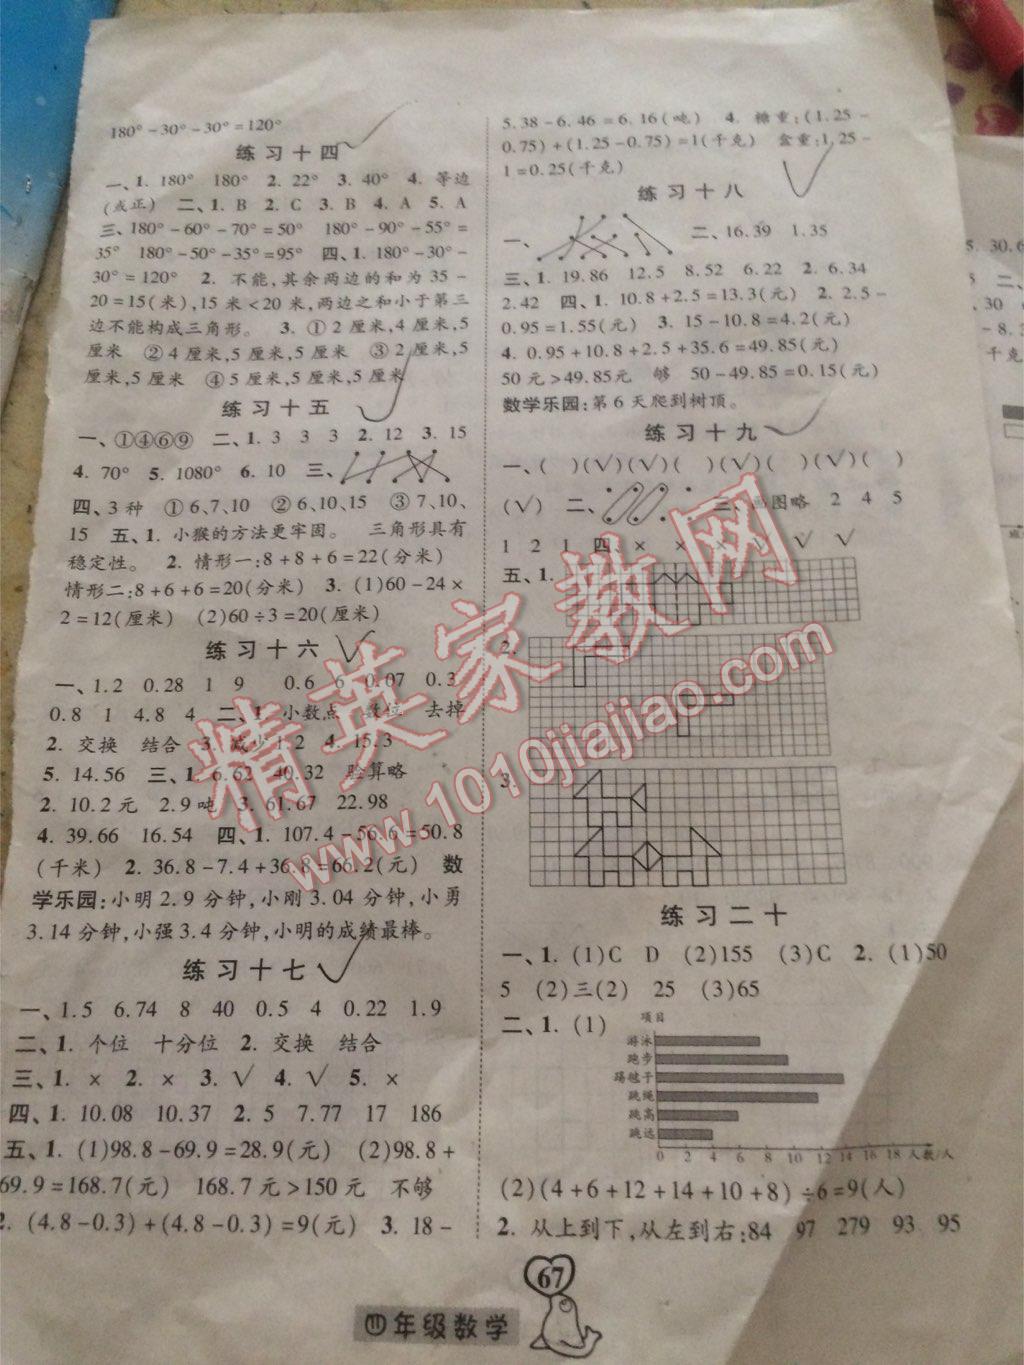 180°-30°-30°=120°
练习十四
一、1. 180° 180° 2. 22° 3. 40° 4. 等边
(或正) 二、1. B 2. C 3. B 4. A 5. A
三、180°-60°-70°=50° 180°-90°-55°=
35° 180°-50°-35°=95° 四、1. 180°-30°-
30°=120° 2. 不能,其余两边的和为 35-
20=15(米),15 米<20 米,两边之和小于第三
边不能构成三角形。 3. ①2 厘米,4 厘米,5
厘米 ②4 厘米,5 厘米,5 厘米 ③2 厘米,5
厘米,5 厘米 ④5 厘米,5 厘米,5 厘米
练习十五
一、①④⑥⑨ 二、1. 3 3 3 2. 12 3. 15
4. 70° 5. 1080° 6. 10 三、
四、3 种 ①6,7,10 ②6,10,15 ③7,10,
15 五、1. 小猴的方法更牢固。 三角形具有
稳定性。 2. 情形一:8+8+6=22(分米)
情形二:8+6+6=20(分米) 3. (1)60-24×
2=12(厘米) (2)60÷3=20(厘米)
练习十六
一、1.2 0.28 1 9 0.6 6 0.07 0.3
0.8 1 4.8 4 二、1. 小数点 数位 去掉
2. 交换 结合 3. 减少 1.2 4. 15.3
5. 14.56 三、1. 6.62 40.32 验算略
2. 10.2 元 2.9 吨 3. 61.67 22.98
4. 39.66 16.54 四、1. 107.4-56.6=50.8
(千米) 2. 36.8-7.4+36.8=66.2(元) 数
学乐园:小明 2.9 分钟,小刚 3.04 分钟,小勇
3.14 分钟,小强 3.4 分钟,小明的成绩最棒。
练习十七
一、1.5 6.74 8 40 0.5 4 0.22 1.9
二、1. 个位 十分位 2. 交换 结合
三、1. × 2. × 3. √ 4. √ 5. ×
四、1. 10.08 10.37 2. 5 7.77 17 186
五、1. (1)98.8-69.9=28.9(元) (2)98.8+
69.9=168.7(元) 168.7 元>150 元 不够
2. (4.8-0.3)+(4.8-0.3)=9(元) 3. 18-
5.38-6.46=6.16(吨) 4. 糖重:(1.25-
0.75)+(1.25-0.75)=1(千克) 盒重:1.25-
1=0.25(千克)
练习十八
一、 二、16.39 1.35
三、1. 19.86 12.5 8.52 6.22 2. 6.34
2.42 四、1. 10.8+2.5=13.3(元) 2. 2.5-
0.95=1.55(元) 3. 15-10.8=4.2(元)
4. 0.95+10.8+2.5+35.6=49.85(元)
50 元>49.85元 够 50-49.85=0.15(元)
数学乐园:第 6 天爬到树顶。
练习十九
一、( )(√)(√)( )(√)( )(√)( )
(√) 二、 三、画图略 2 4 5
1 2 1 四、× × × √ √
五、1.
2.
3.
练习二十
一、1. (1)C D (2)155 (3)C 2. (1)50
5 (2)三(2) 25 (3)65
二、1. (1) 项目
游泳
跑步
踢毽子
跳绳
跳高
跳远
0 2 4 6 8 10 12 14 16 18 人数/人
(2)(4+6+12+14+10+8)÷6=9(人)
2. 从上到下,从左到右:84 97 279 93 95
67
四年级数学
5. 30.6
二、
30
-8.3
千克
精英家教网
www.1010jiajiao.com